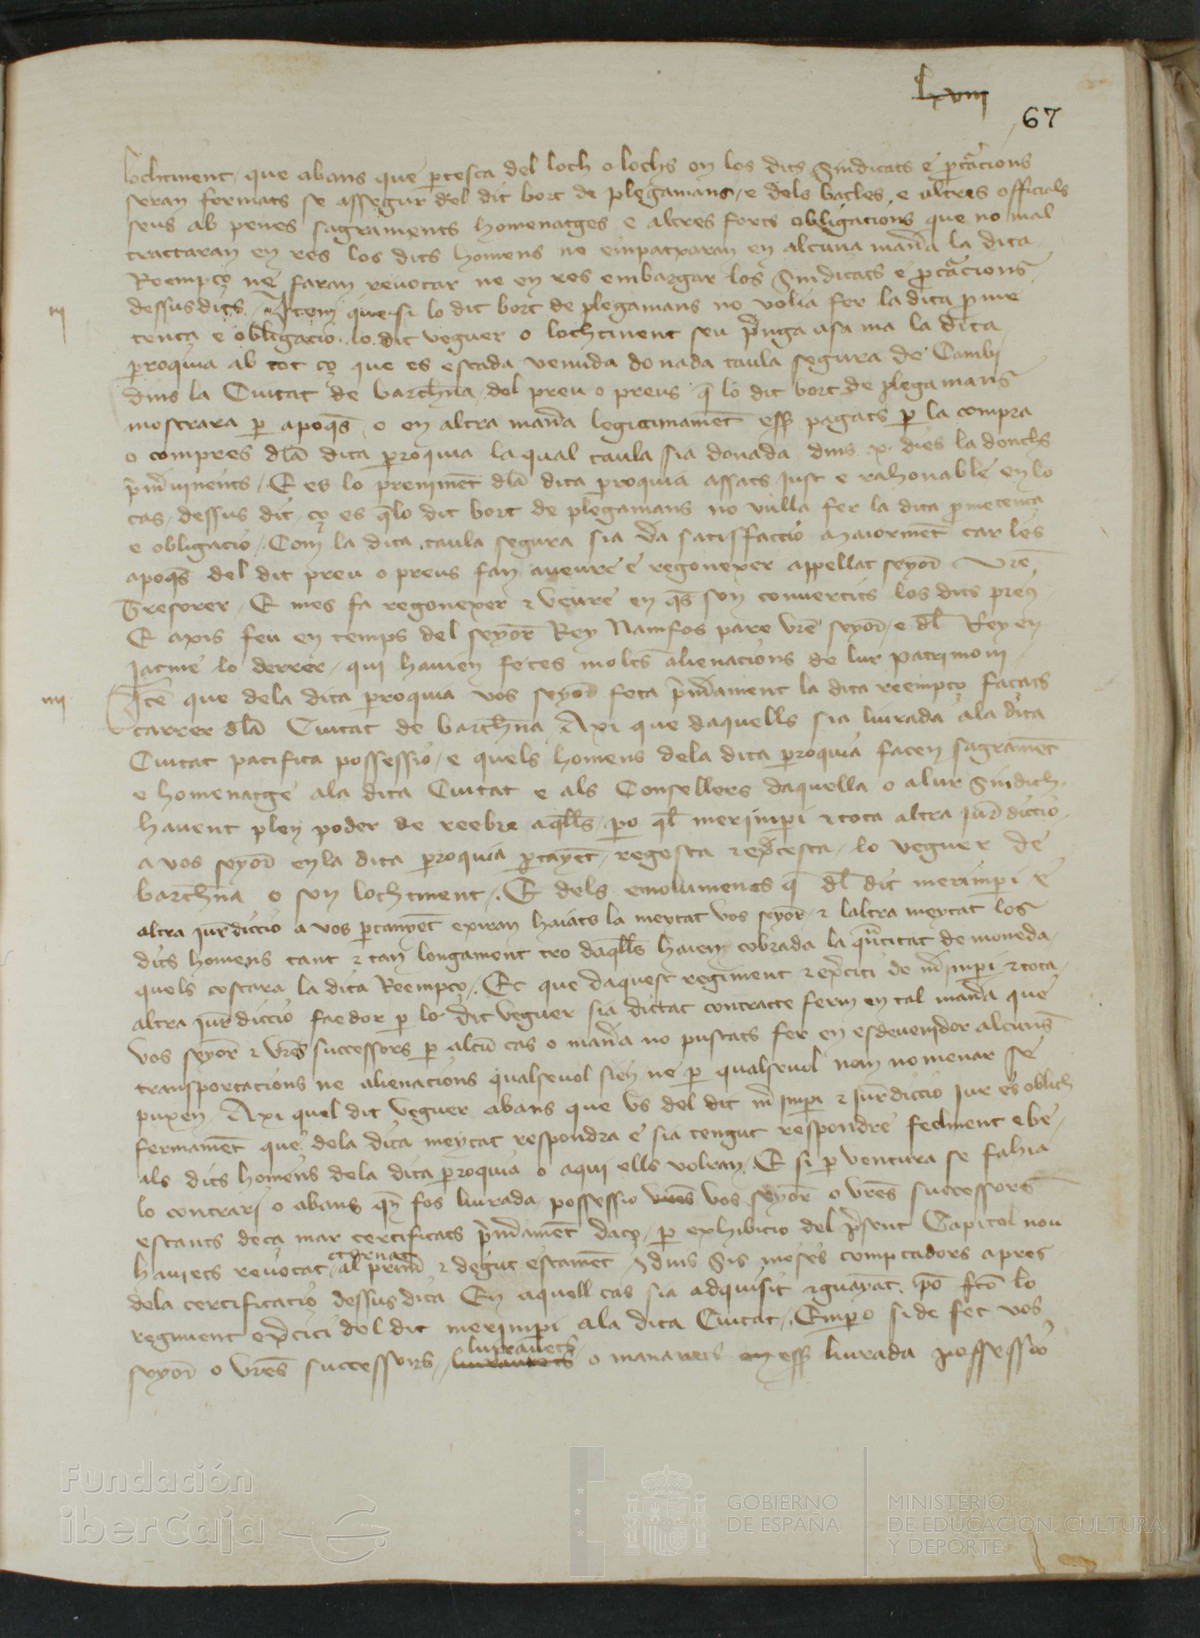 Lxviii
67
lochtinent que abans que partesca del loch o lochs on los dits Sindicats e procuracions
seran fermats se assegur del dit bort de plegamans e dels batles e altres officials
seus ab penes sagraments homenatges e altres forts obligacions que no mal
tractaran en res los dits homens ne empatxaran en alcuna manera la dita
Reempço ne faran revocar ne en res embargar los Sindicats e procuracions
iii
dessusdits Item que si lo dit bort de plegamans no volia fer la dita prome
tença e obligacio lo dit veguer o lochtinent seu prenga a sa ma la dita
parroquia ab tot ço que es estada venuda donada taula segura de Cambi
dins la Ciutat de barchna del preu o preus q lo dit bort de plegamans
mostrara p apoqs o en altra manera legitimament esser pagats p la compra
o compres dla dita parroquia la qual taula sia donada dins x dies ladonchs
primers vinents E es lo preniment dla dita parroquia assats just e rahonable en lo
cas dessus dit ço es qlo dit bort de plegamans no vulla fer la dita prometença
e obligacio Com la dita taula segura sia vera satisfaccio maiorment car les
apoqs del dit preu o preus fan aveure e regonexer appellat seyor vre
Tresorer E mes fa regonexer e veure en qs son convertits los dits preus
E axis feu en temps del seyor Rey Namfos pare vre seyor e dl Rey en
Jacme lo derrer qui havien fetes molts alienacions de lur patrimoni
iiii
Ite que dela dita parroquia vos seyor feta primerament la dita reempço façats
carrer dla Ciutat de barchna Axi que daquells sia liurada ala dita
Ciutat pacifica possessio e quels homens dela dita parroquia facen sagrament
e homenatge ala dita Ciutat e als Consellers daquella o a lur Sindich
havent plen poder de reebre aqlls po ql mer imperi e tota altra jurdiccio
a vos seyor en la dita parroquia pertanyent regesta e exercesta lo veguer de
barchna o son lochtinent E dels emoluments q dl dit mer imperi e
altra jurdiccio a vos pertanyent exiran haiats la meytat vos seyor e laltra meytat los
dits homens tant e tan longament tro daqlls haien cobrada la quantitat de moneda
quels costara la dita Reempço Et que daquest regiment e exercici de mer imperi e tota
altra jurdiccio faedor p lo dit veguer sia dictat contracte ferm en tal manera que
vos seyor e vres successors p alcun cas o manera no puscats fer en esdevenidor alcunes
transportacions ne alienacions qualsevol sien ne p qualsevol nom nomenar se
puxen Axi quel dit veguer abans que us del dit mer imperi e jurdiccio jur es oblich
fermament que dela dita meytat respondra e sia tengut respondre feelment e be
als dits homens dela dita parroquia o aqui ells volran E si p ventura se fahia
lo contrari o abans qn fos liurada possessio vos seyor o vres successors
estants deça mar certificats primerament daço p exhibicio del present Capitol non
haviets revocat al primer e degut estament dins Sis meses comptadors apres
dela certificacio dessus dita En aquell cas sia adquisit e guanyat lo
regiment exercici del dit mer imperi ala dita Ciutat Empero si de fet vos
seyor o vres successors liuravets o manavets esser liurada possessio
Fundación
iberCaja
GOBIERNO
DE ESPAÑA
MINISTERIO
DE EDUCACIÓN, CULTURA
Y DEPORTE